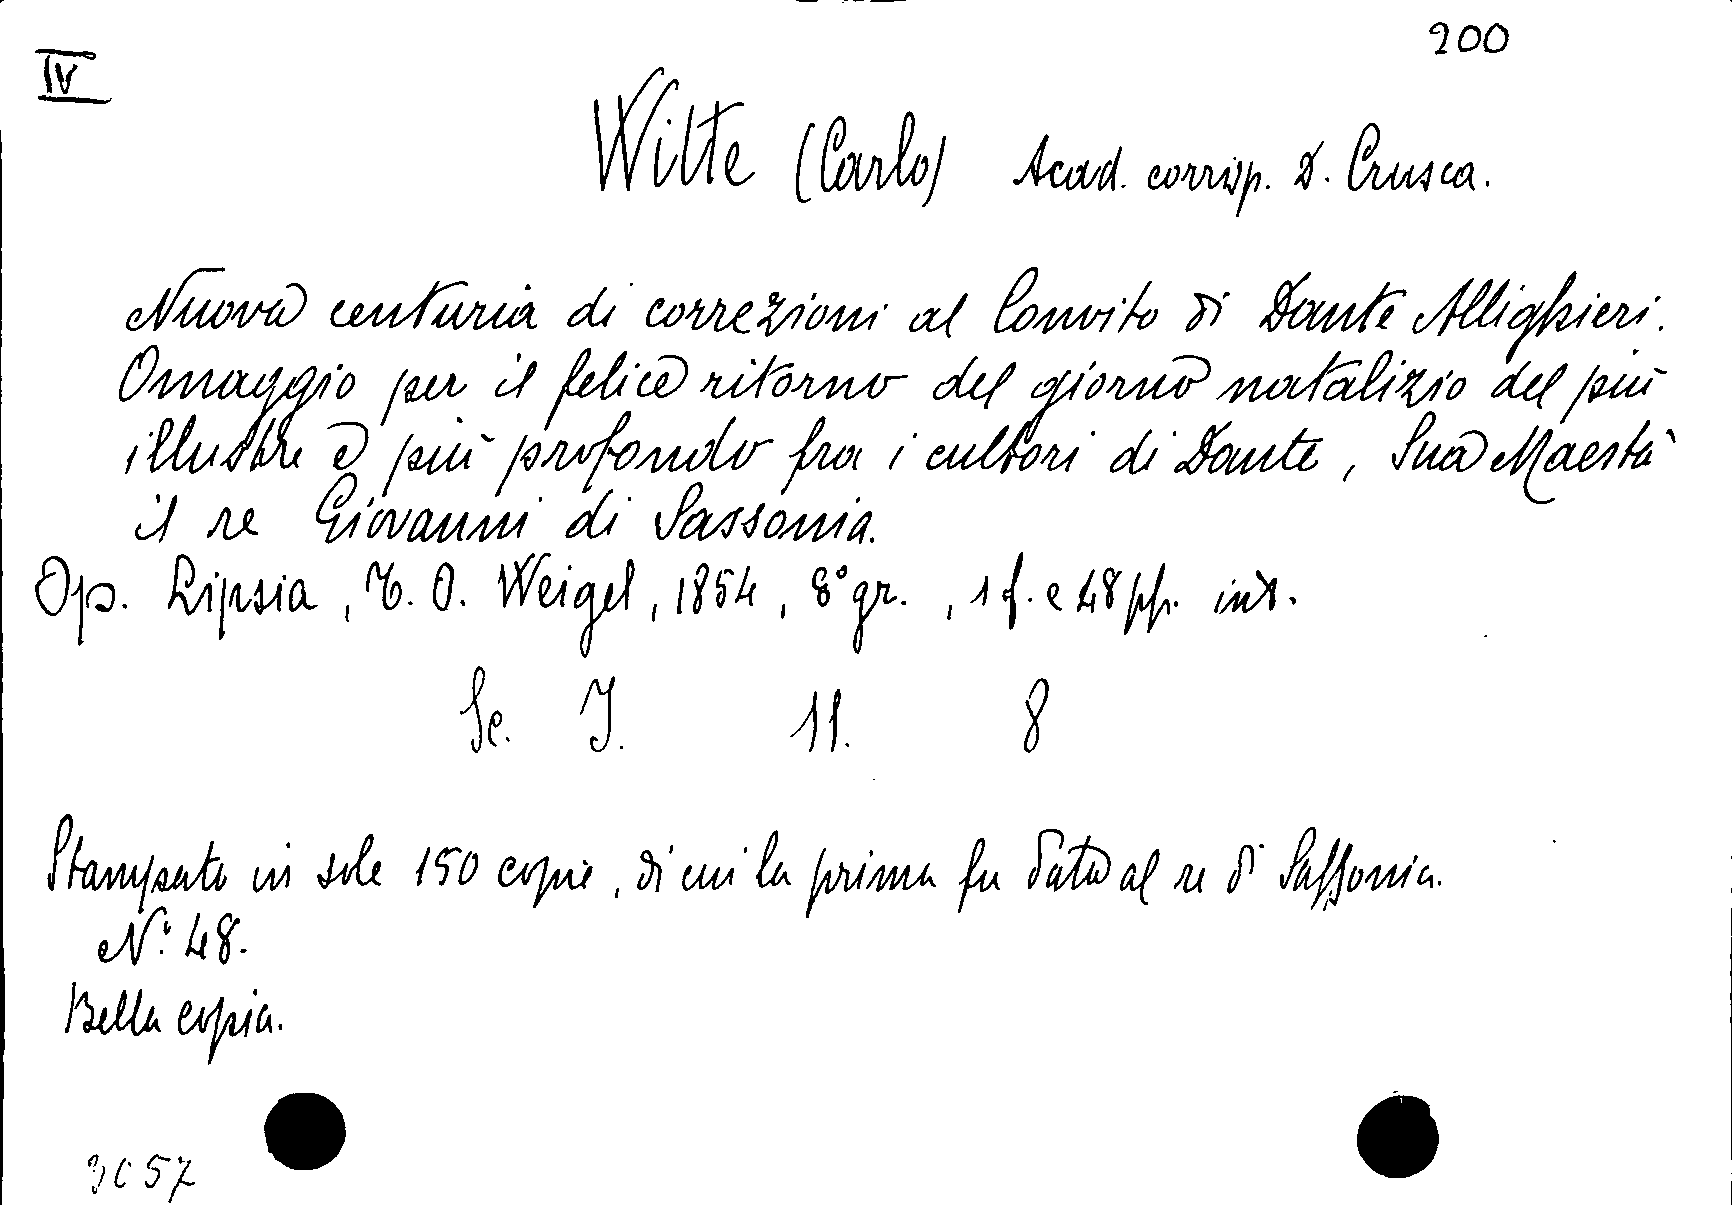 200
IV
Witte (Carlo) Acad. corrisp. d. Crusca.
Nuova centuria di correzioni al Convito di Dante Allighieri.
Omaggio per il felice ritorno del giorno natalizio del più
illustre e più profondo fra i cultori di Dante, Sua Maestà
il re Giovanni di Sassonia.
Op. Lipsia, T. O. Weigel, 1854, 8° gr., 1 f. e 48 pp. int.
Sc. I. 11. 8
Stampato in sole 150 copie, di cui la prima fu data al re di Sassonia.
N.° 48.
Bella copia.